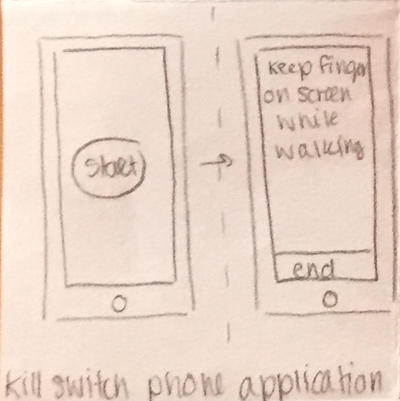 Start
keep finger
on screen
while
walking
end
kill switch phone application